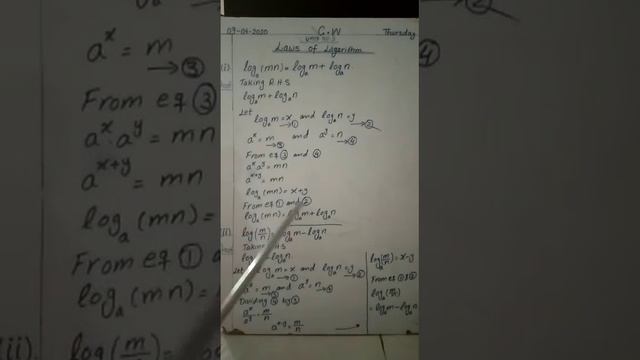 09-04-2020 C.W Thursday
Laws of Logarithm
(i). logₐ(mn) = logₐm + logₐn
Taking R.H.S
logₐm + logₐn
Let
logₐm = x →① and logₐn = y →②
aˣ = m →③ and aʸ = n →④
From eq ③ and ④
aˣ.aʸ = mn
aˣ⁺ʸ = mn
logₐ(mn) = x+y
From eq ① and ②
logₐ(mn) = logₐm + logₐn
(ii). log(m/n) = logₐm - logₐn
Taking R.H.S
- logₐn
Let logₐm = x →① and logₐn = y →②
aˣ = m →③ and aʸ = n →④
Dividing ④ by ③
aˣ/aʸ = m/n
aˣ⁻ʸ = m/n
logₐ(m/n) = x-y
From eq ① & ②
logₐ(m/n)
= logₐm - logₐn
aˣ = m
→③
From eq ③
aˣ.aʸ = mn
aˣ⁺ʸ = mn
logₐ(mn) =
From eq ① a
logₐ(mn) =
(ii). log(m/n) =
④